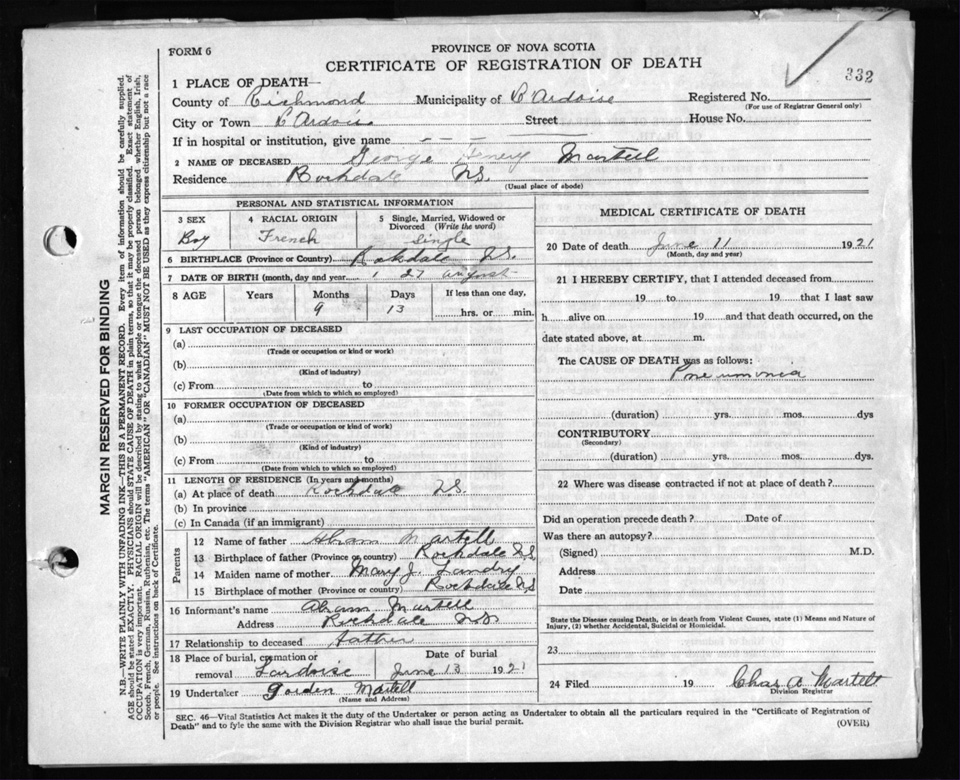 FORM 6
PROVINCE OF NOVA SCOTIA
CERTIFICATE OF REGISTRATION OF DEATH
332
1 PLACE OF DEATH—
County of Richmond Municipality of L'Ardoise Registered No.
(For use of Registrar General only)
City or Town L'Ardoise Street House No.
If in hospital or institution, give name — — —
2 NAME OF DECEASED George Henery Martell
Residence Rockdale N.S.
(Usual place of abode)
PERSONAL AND STATISTICAL INFORMATION
3 SEX 4 RACIAL ORIGIN 5 Single, Married, Widowed or Divorced (Write the word)
Boy French Single
6 BIRTHPLACE (Province or Country) Rokdale N.S.
7 DATE OF BIRTH (month, day and year) 1 27 august
8 AGE Years Months Days If less than one day,
9 13 hrs. or min.
9 LAST OCCUPATION OF DECEASED
(a)
(Trade or occupation or kind or work)
(b)
(Kind of industry)
(c) From to
(Date from which to which so employed)
10 FORMER OCCUPATION OF DECEASED
(a)
(Trade or occupation or kind of work)
(b)
(Kind of industry)
(c) From to
(Date from which to which so employed)
11 LENGTH OF RESIDENCE (In years and months)
(a) At place of death Rockdale N.S.
(b) In province
(c) In Canada (if an immigrant)
Parents
12 Name of father Abram Martell
13 Birthplace of father (Province or country) Rockdale N.S
14 Maiden name of mother Mary J. Landry
15 Birthplace of mother (Province or country) Rockdale N.S
16 Informant's name Abram Martell
Address Rockdale N.S.
17 Relationship to deceased father
18 Place of burial, cremation or removal Lardoise Date of burial June 13 1921
19 Undertaker Gorden Martell
(Name and Address)
MEDICAL CERTIFICATE OF DEATH
20 Date of death June 11 1921
(Month, day and year)
21 I HEREBY CERTIFY, that I attended deceased from
19 to 19 that I last saw
h alive on 19 and that death occurred, on the
date stated above, at m.
The CAUSE OF DEATH was as follows:
Pneumonia
(duration) yrs. mos. dys
CONTRIBUTORY
(Secondary)
(duration) yrs. mos. dys.
22 Where was disease contracted if not at place of death?
Did an operation precede death? Date of
Was there an autopsy?
(Signed) M.D.
Address
Date
State the Disease causing Death, or in death from Violent Causes, state (1) Means and Nature of Injury, (2) whether Accidental, Suicidal or Homicidal.
23
24 Filed 19 Chas A Martell
Division Registrar
SEC. 46—Vital Statistics Act makes it duty of the Undertaker or person acting as Undertaker to obtain all the particulars required in the "Certificate of Registration of
Death" and to fyle the same with the Division Registrar who shall issue the burial permit.
(OVER)
MARGIN RESERVED FOR BINDING
N.B.—WRITE PLAINLY WITH UNFADING INK—THIS IS A PERMANENT RECORD. Every item of information should be carefully supplied.
AGE should be stated EXACTLY. PHYSICIANS should STATE CAUSE OF DEATH in plain terms, so that it may be properly classified. Exact statement of
OCCUPATION is very important. RACIAL ORIGIN will be described by stating to what people or tongue the deceased person belonged, whether English, Irish,
Scotch, French, German, Russian, Ruthenian, etc. The terms "AMERICAN" OR "CANADIAN" MUST NOT BE USED as they express citizenship but not a race
or people. See instructions on back of Certificate.